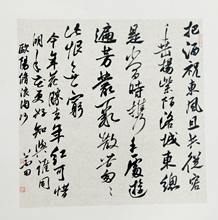 把酒祝東風且共從容
垂楊紫陌洛城東總
是當時攜手處遊
遍芳叢聚散苦匆匆
此恨無窮
今年花勝去年紅可惜
明年花更好知與誰同
歐陽修浪淘沙